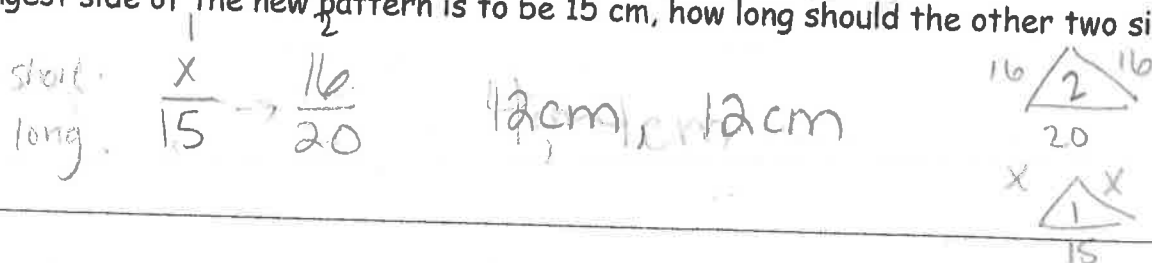 gest side of the new pattern is to be 15 cm, how long should the other two si
1 2
short x 16 16 2 16
long 15 20 12cm, 12cm 20
x 1 x
15